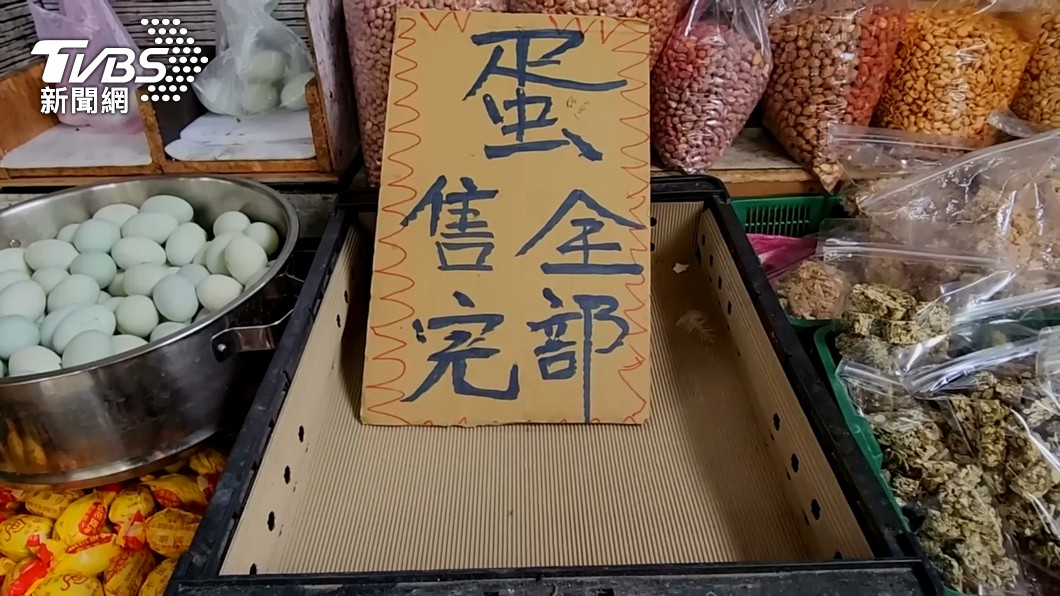 TVBS
新聞網
蛋
全部
售完